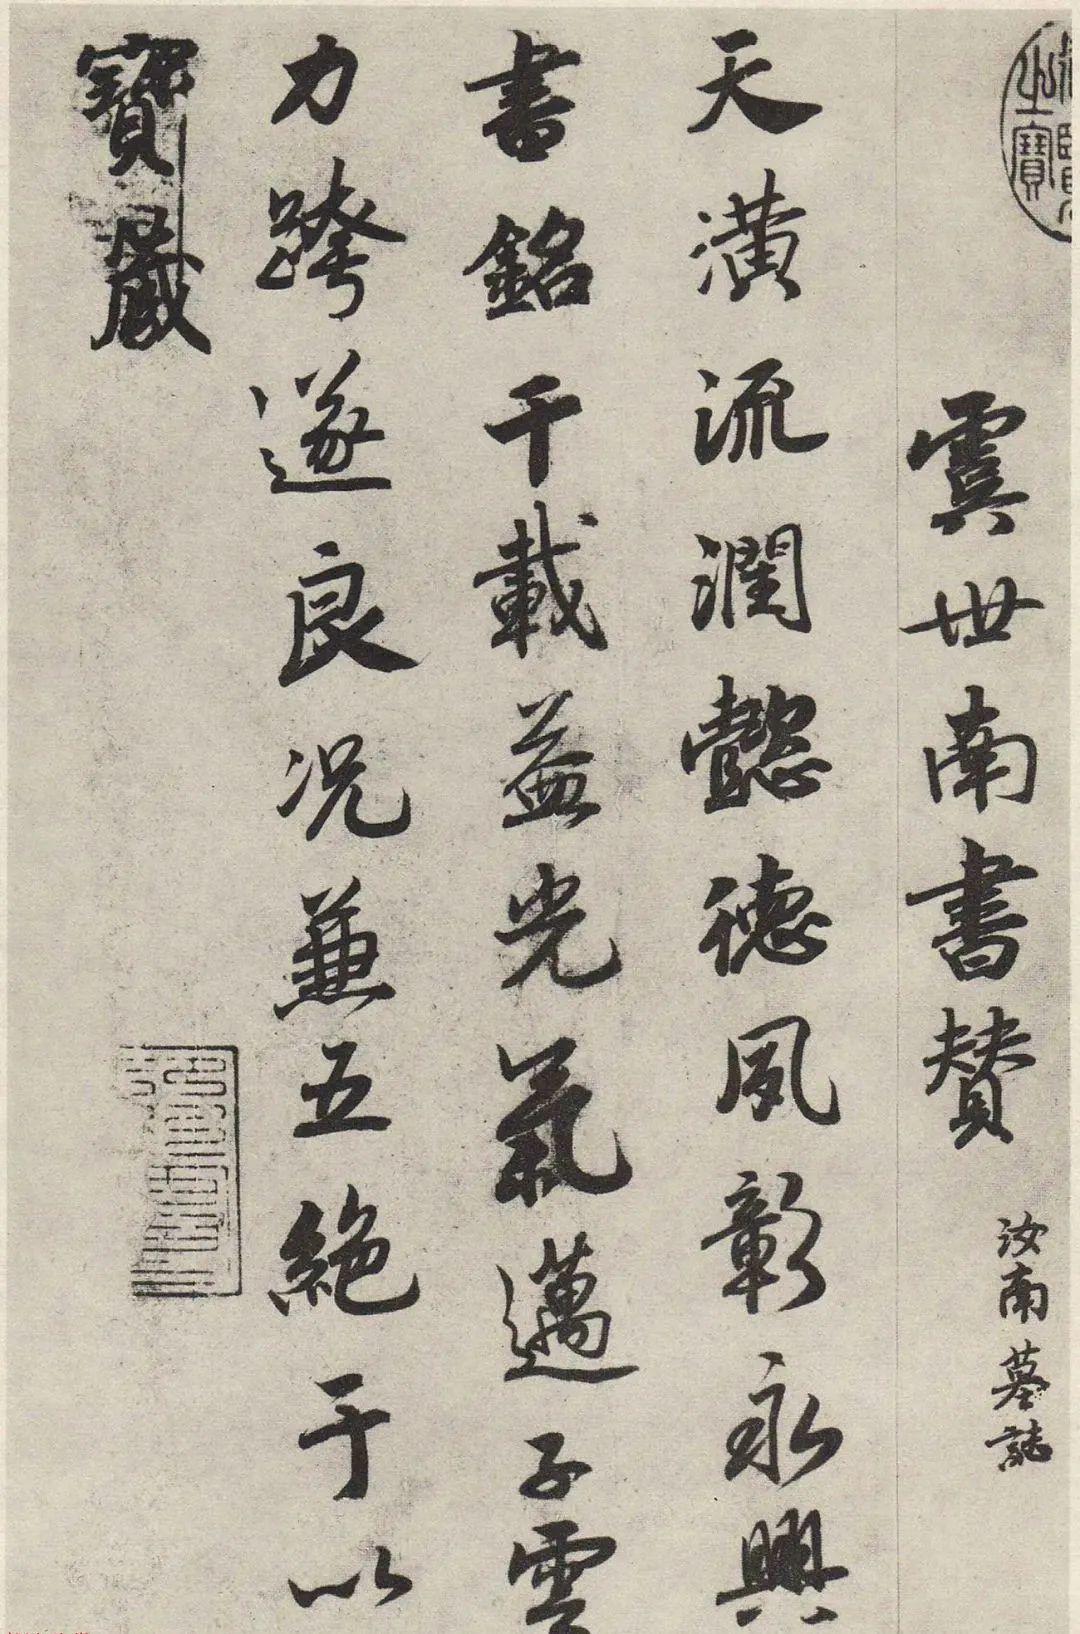 虞世南書贊 汝南墓誌
天潢流潤懿德夙彰永興
書銘千載益光氣邁子雲
力跨遂良况兼五絶于以
寶藏
之寶